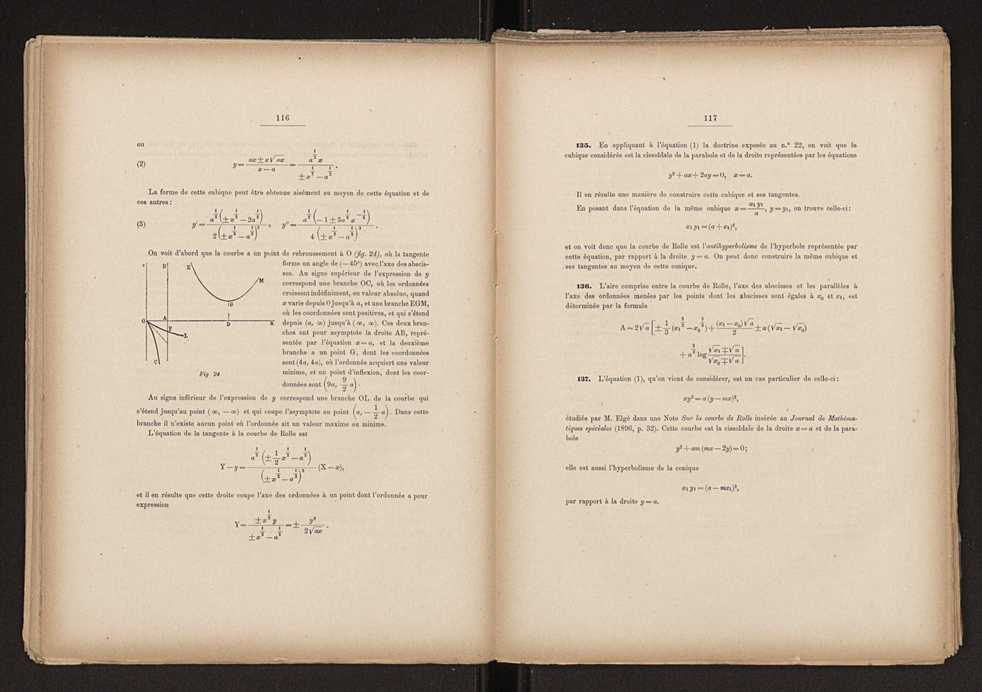 116
ou
(2) y = (ax ± x√ax)/(x − a) = a^{1/2} x/(± x^{1/2} − a^{1/2}).
La forme de cette cubique peut être obtenue aisément au moyen de cette équation et de
ces autres:
(3) y' = a^{1/2}(± x^{3/2} − 2a^{3/2})/2(± x^{1/2} − a^{1/2})^2, y'' =
On voit d'abord que la courbe a un point de rebroussement à O (fig. 24), où la tangente
forme un angle de (— 45°) avec l'axe des abscis-
ses. Au signe supérieur de l'expression de y
correspond une branche OC, où les ordonnées
croissent indéfiniment, en valeur absolue, quand
x varie depuis 0 jusqu'à a, et une branche EGM,
où les coordonnées sont positives, et qui s'étend
depuis (a, ∞) jusqu'à (∞, ∞). Ces deux bran-
ches ont pour asymptote la droite AB, repré-
sentée par l'équation x = a, et la deuxième
branche a un point G, dont les coordonnées
sont (4a, 4a), où l'ordonnée acquiert une valeur
minime, et un point d'inflexion, dont les coor-
données sont (9a, 9/2 a).
B
E
M
G
O
A
F
D
X
L
C
Fig 24
Au signe inférieur de l'expression de y correspond une branche OL de la courbe qui
s'étend jusqu'au point (∞, — ∞) et qui coupe l'asymptote au point (a, — 1/2 a). Dans cette
branche il n'existe aucun point où l'ordonnée ait un valeur maxime ou minime.
L'équation de la tangente à la courbe de Rolle est
Y — y = a^{1/2}(± 1/2 x^{1/2} − a^{1/2})/(± x^{1/2} − a^{1/2})^2 (X — x),
et il en résulte que cette droite coupe l'axe des ordonnées à un point dont l'ordonnée a pour
expression
Y = ± x^{1/2} y/(± x^{1/2} − a^{1/2}) = ± y²/2√ax.
117
135. En appliquant à l'équation (1) la doctrine exposée au n.º 22, on voit que la
cubique considérée est la cissoïdale de la parabole et de la droite représentées par les équations
y² + ax + 2ay = 0, x = a.
Il en résulte une manière de construire cette cubique et ses tangentes.
En posant dans l'équation de la même cubique x = x₁y₁/a, y = y₁, on trouve celle-ci:
x₁y₁ = (a + x₁)²,
et on voit donc que la courbe de Rolle est l'antihyperbolisme de l'hyperbole représentée par
cette équation, par rapport à la droite y = a. On peut donc construire la même cubique et
ses tangentes au moyen de cette conique.
136. L'aire comprise entre la courbe de Rolle, l'axe des abscisses et les parallèles à
l'axe des ordonnées menées par les points dont les abscisses sont égales à x₀ et x₁, est
déterminée par la formule
A = 2√a [± 1/3 (x₁^{3/2} — x₀^{3/2}) + (x₁ — x₀)√a/2 ± a(√x₁ — √x₀)
+ a^{3/2} log (√x₁ ∓ √a)/(√x₀ ∓ √a)].
137. L'équation (1), qu'on vient de considérer, est un cas particulier de celle-ci:
xy² = a(y — mx)²,
étudiée par M. Elgé dans une Note Sur la courbe de Rolle insérée au Journal de Mathéma-
tiques spéciales (1896, p. 32). Cette courbe est la cissoïdale de la droite x = a et de la para-
bole
y² + am(mx — 2y) = 0;
elle est aussi l'hyperbolisme de la conique
x₁y₁ = (a — mx₁)²,
par rapport à la droite y = a.